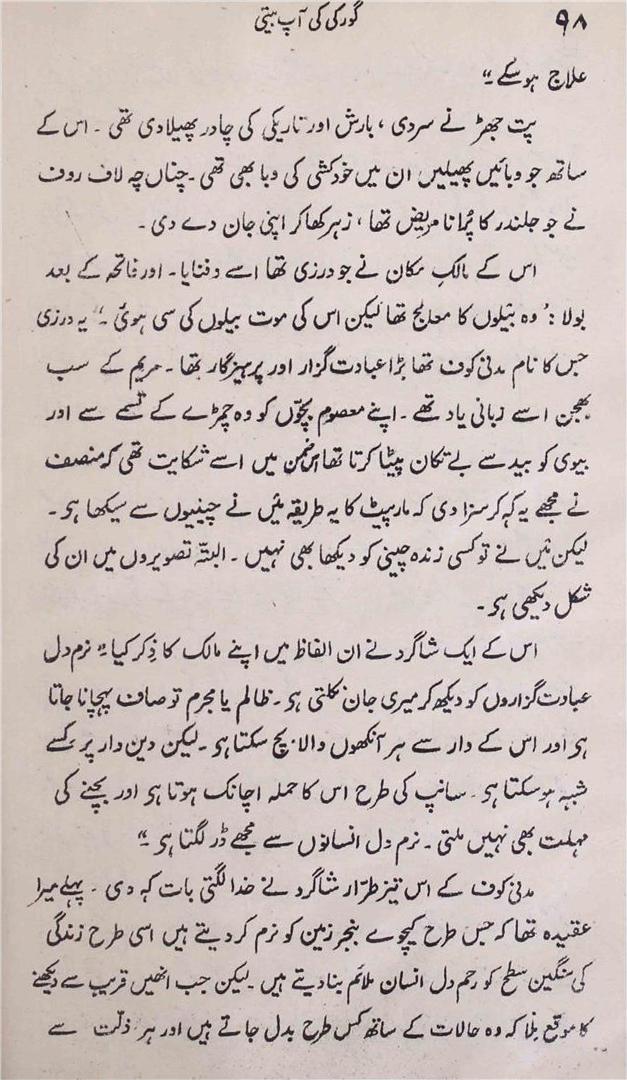 ۹۸
گورکی کی آپ بیتی
علاج ہو سکے۔"
پت جھڑ نے سردی، بارش اور تاریکی کی چادر پھیلا دی تھی۔ اس کے
ساتھ جو وبائیں پھیلیں ان میں خودکشی کی وبا بھی تھی۔ چناں چہ لاف روف
نے جو جلندر کا پُرانا مریض تھا، زہر کھا کر اپنی جان دے دی۔
اس کے مالکِ مکان نے جو درزی تھا اسے دفنایا۔ اور فاتحہ کے بعد
بولا: "وہ بیلوں کا معالج تھا لیکن اس کی موت بیلوں کی سی ہوئی۔" یہ درزی
جس کا نام مدنی کوف تھا بڑا عبادت گزار اور پرہیزگار تھا۔ مریم کے سب
بھجن اسے زبانی یاد تھے۔ اپنے معصوم بچّوں کو وہ چمڑے کے تسمے سے اور
بیوی کو بید سے بے تکان پیٹا کرتا تھا اس ضمن میں اسے شکایت تھی کہ منصف
نے مجھے یہ کہہ کر سزا دی کہ مارپیٹ کا یہ طریقہ مَیں نے چینیوں سے سیکھا ہو۔
لیکن مَیں نے تو کسی زندہ چینی کو دیکھا بھی نہیں۔ البتّہ تصویروں میں ان کی
شکل دیکھی ہو۔
اس کے ایک شاگرد نے ان الفاظ میں اپنے مالک کا ذِکر کیا "نرم دل
عبادت گزاروں کو دیکھ کر میری جان نکلتی ہو۔ ظالم یا مجرم تو صاف پہچانا جاتا
ہو اور اس کے وار سے ہر آنکھوں والا بچ سکتا ہو۔ لیکن دین دار پر کسے
شبہہ ہو سکتا ہو۔ سانپ کی طرح اس کا حملہ اچانک ہوتا ہو اور بچنے کی
مہلت بھی نہیں ملتی۔ نرم دل انسانوں سے مجھے ڈر لگتا ہو۔"
مدنی کوف کے اس تیز طرّار شاگرد نے خدا لگتی بات کہہ دی۔ پہلے میرا
عقیدہ تھا کہ جس طرح کیچوے بنجر زمین کو نرم کر دیتے ہیں اسی طرح زندگی
کی سنگین سطح کو رحم دل انسان ملائم بنا دیتے ہیں۔ لیکن جب انھیں قریب سے دیکھنے
کا موقع ملا کہ وہ حالات کے ساتھ کس طرح بدل جاتے ہیں اور ہر ذلّت سے